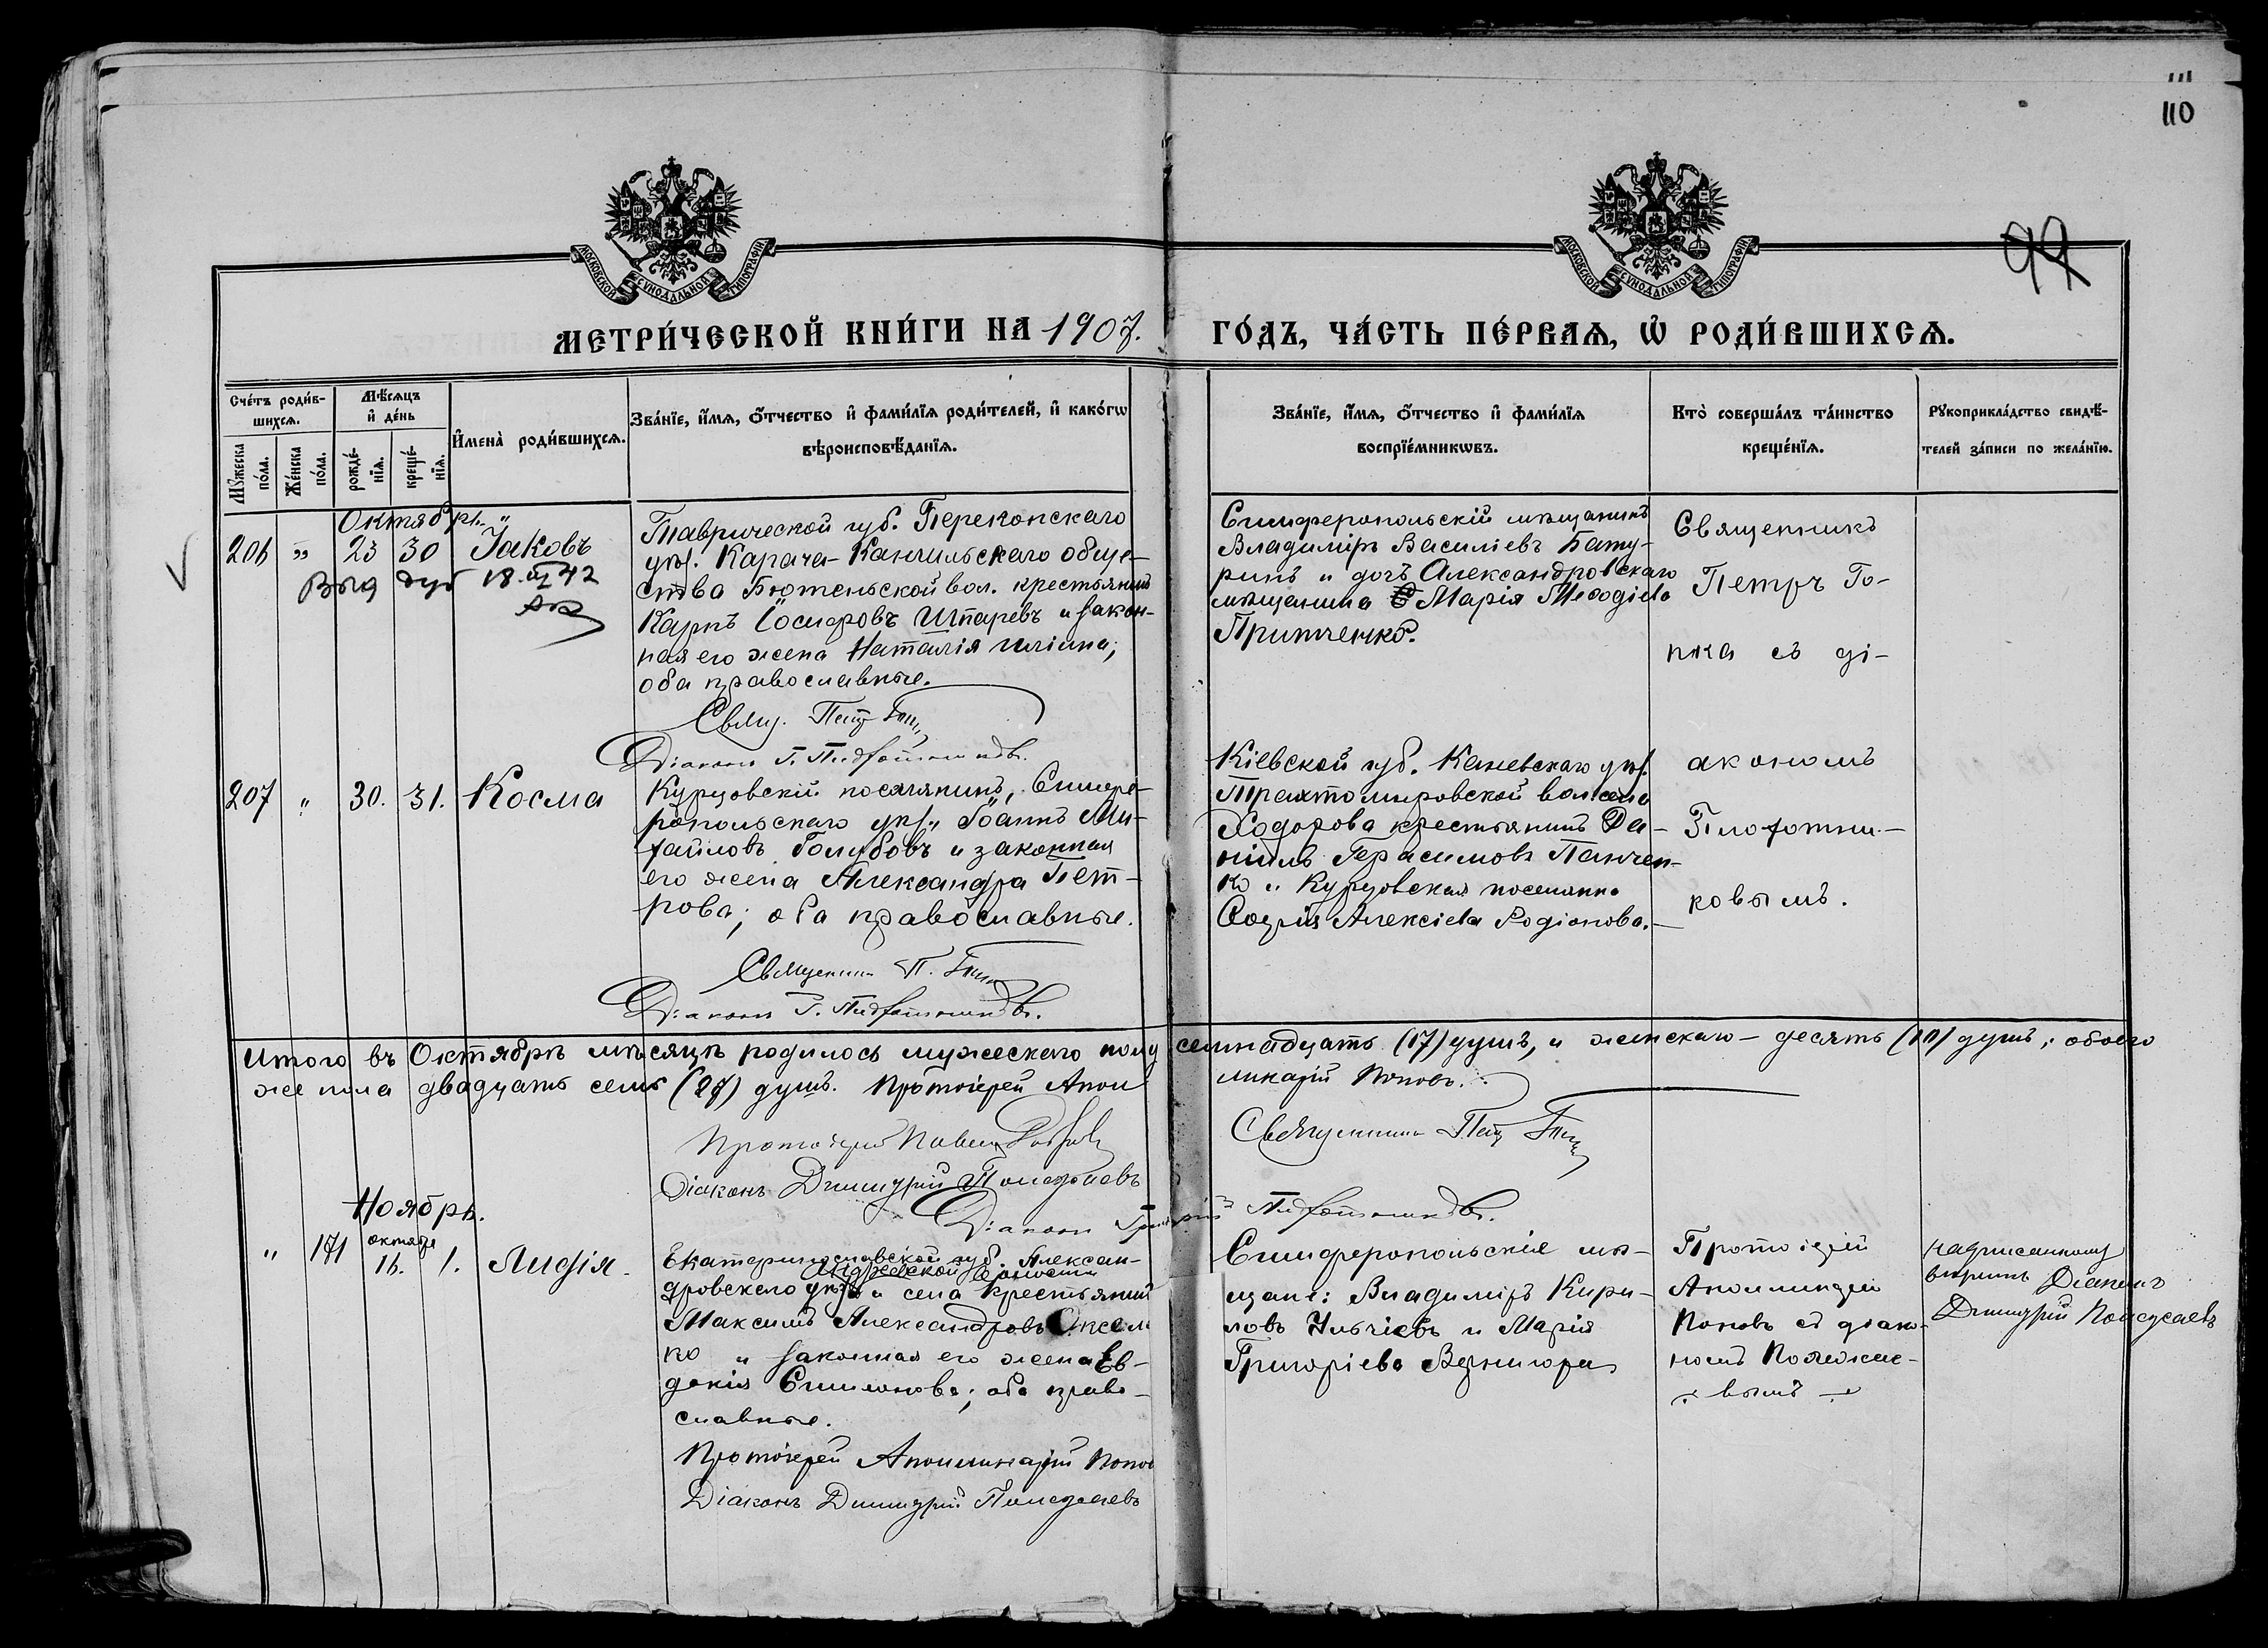 111
110
99
МОСКОВСКОЙ СѴНОДАЛЬНОЙ ТИПОГРАФІИ
МОСКОВСКОЙ СѴНОДАЛЬНОЙ ТИПОГРАФІИ
МЕТРИ́ЧЕСКОЙ КНИ́ГИ НА 1907. ГО́ДЪ, ЧА́СТЬ ПЕ́РВАѦ, Ѡ҆ РОДИ́ВШИХСѦ.
Сче́тъ роди́в-
шихсѧ.
Мꙋ́жеска по́ла.
Же́нска по́ла.
Мѣ́сѧцъ
и҆ де́нь
рожде́-
нїѧ.
креще́-
нїѧ.
И҆мена̀ роди́вшихсѧ.
Зва́нїе, и҆́мѧ, ѻ҆́тчество и҆ фами́лїѧ роди́телей, и҆ како́гѡ
вѣроисповѣ́данїѧ.
Зва́нїе, и҆́мѧ, ѻ҆́тчество и҆ фами́лїѧ
воспрїе́мникѡвъ.
Кто̀ соверша́лъ та́инство
креще́нїѧ.
Рꙋкоприкла́дство свидѣ́-
телей за́писи по жела́нїю.
Октябрь
206 " 23 30 Іаковъ
Выд дуб 18.
42
Таврической губ. Перекопскаго
уѣз. Карача-Кангильскаго обще-
ства Бютеньской вол. крестьянинъ
Карпъ Іосифовъ Шпаревъ и закон-
ная его жена Наталія Иліина;
оба православные.
Свящ. Петр
Діаконъ Г.
Симферопольскій мѣщанинъ
Владиміръ Василіевъ Бату-
ринъ и дочь Александровскаго
мѣщанина Марія Меѳодіева
Притченко.
Священникъ
Петръ Го-
пка съ ді-
акономъ
Плототни-
ковымъ.
207 " 30. 31. Косма
Курцовскій поселянинъ, Симфе-
ропольскаго уѣз., Іоаннъ Ми-
хайловъ Голубовъ и законная
его жена Александра Пет-
рова; оба православные.
Священникъ П.
Діаконъ Г.
Кіевской губ. Каневскаго уѣз.
Трахтомировской вол. села
Ходорова крестьянинъ Да-
ніилъ Герасимовъ Панчен-
ко и Курцовская поселянка
Софія Алексіева Родіонова.
Итого въ Октябрѣ мѣсяцѣ родилось мужескаго полу семнадцать (17) душъ, и женскаго – десять (10) душъ, обоего
же пола двадцать семь (27) душъ. Протоіерей Аполлинарій Поповъ.
Протоіерей Павелъ
Священникъ Петр
Діаконъ Димитрій Полежаевъ
Діаконъ Григорій
Ноябрь.
" 171 октября 16. 1. Лидія
Екатеринославской губ. Алексан-
дровскаго уѣз. и села крестьянинъ
Максимъ Александровъ
ко и законная его жена Ев-
докія Симеонова; оба право-
славные.
Протоіерей Аполлинарій Поповъ
Діаконъ Димитрій Полежаевъ
Симферопольскіе мѣ-
щане: Владиміръ Кири-
ловъ Ильчіевъ и Марія
Григоріева Вернигора
Протоіерей
Аполлинарій
Поповъ съ діако-
номъ Полежае-
вымъ
надписанному
вѣрить Діаконъ
Димитрій Полежаевъ